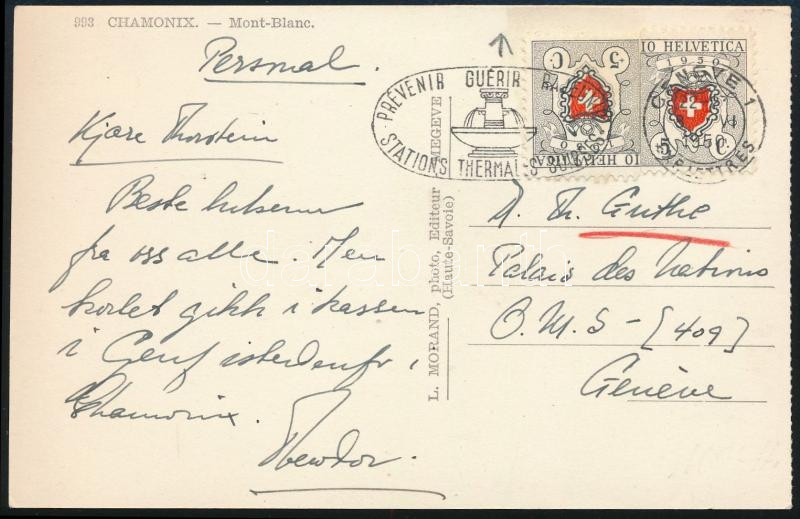 993 CHAMONIX. — Mont-Blanc.
Personal.
Kjære Thorstein
Beste hilsener
fra oss alle. Men
kortet gikk i kassen
i Genf istedenfor i
Chamonix.
Theodor.
L. MORAND, photo, Editeur MEGEVE
(Haute-Savoie)
PRÉVENIR GUÉRIR
STATIONS THERMALES SUISSES
5 + 5 C
10 HELVETIA
10 HELVETICA
1950
5 C
GENÈVE 1
VI
1950
LETTRES
D. Th. Guthe
Palais des Nations
O. M. S - [409]
Genève